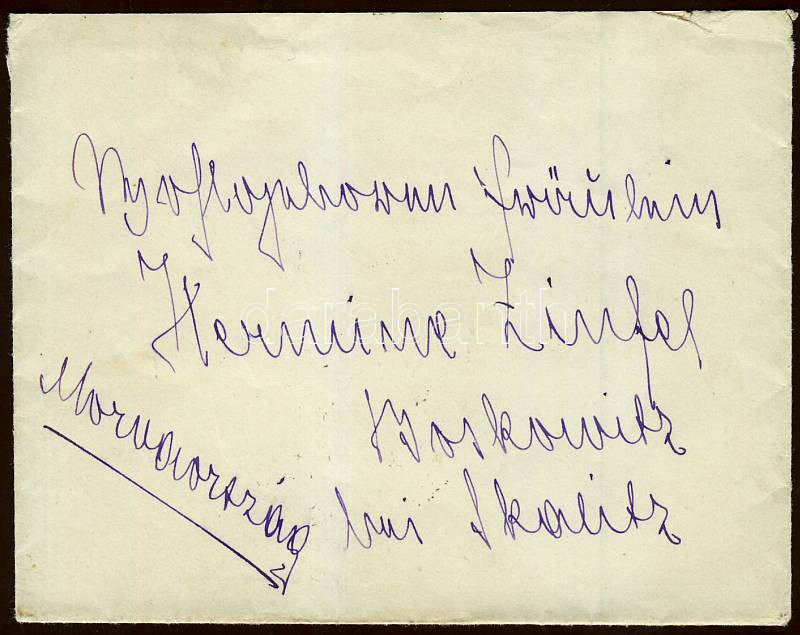 Wohlgeborenen Fräulein
Hermine Zinfel
Boskowitz
bei Skalitz
Morvaország
darabanth